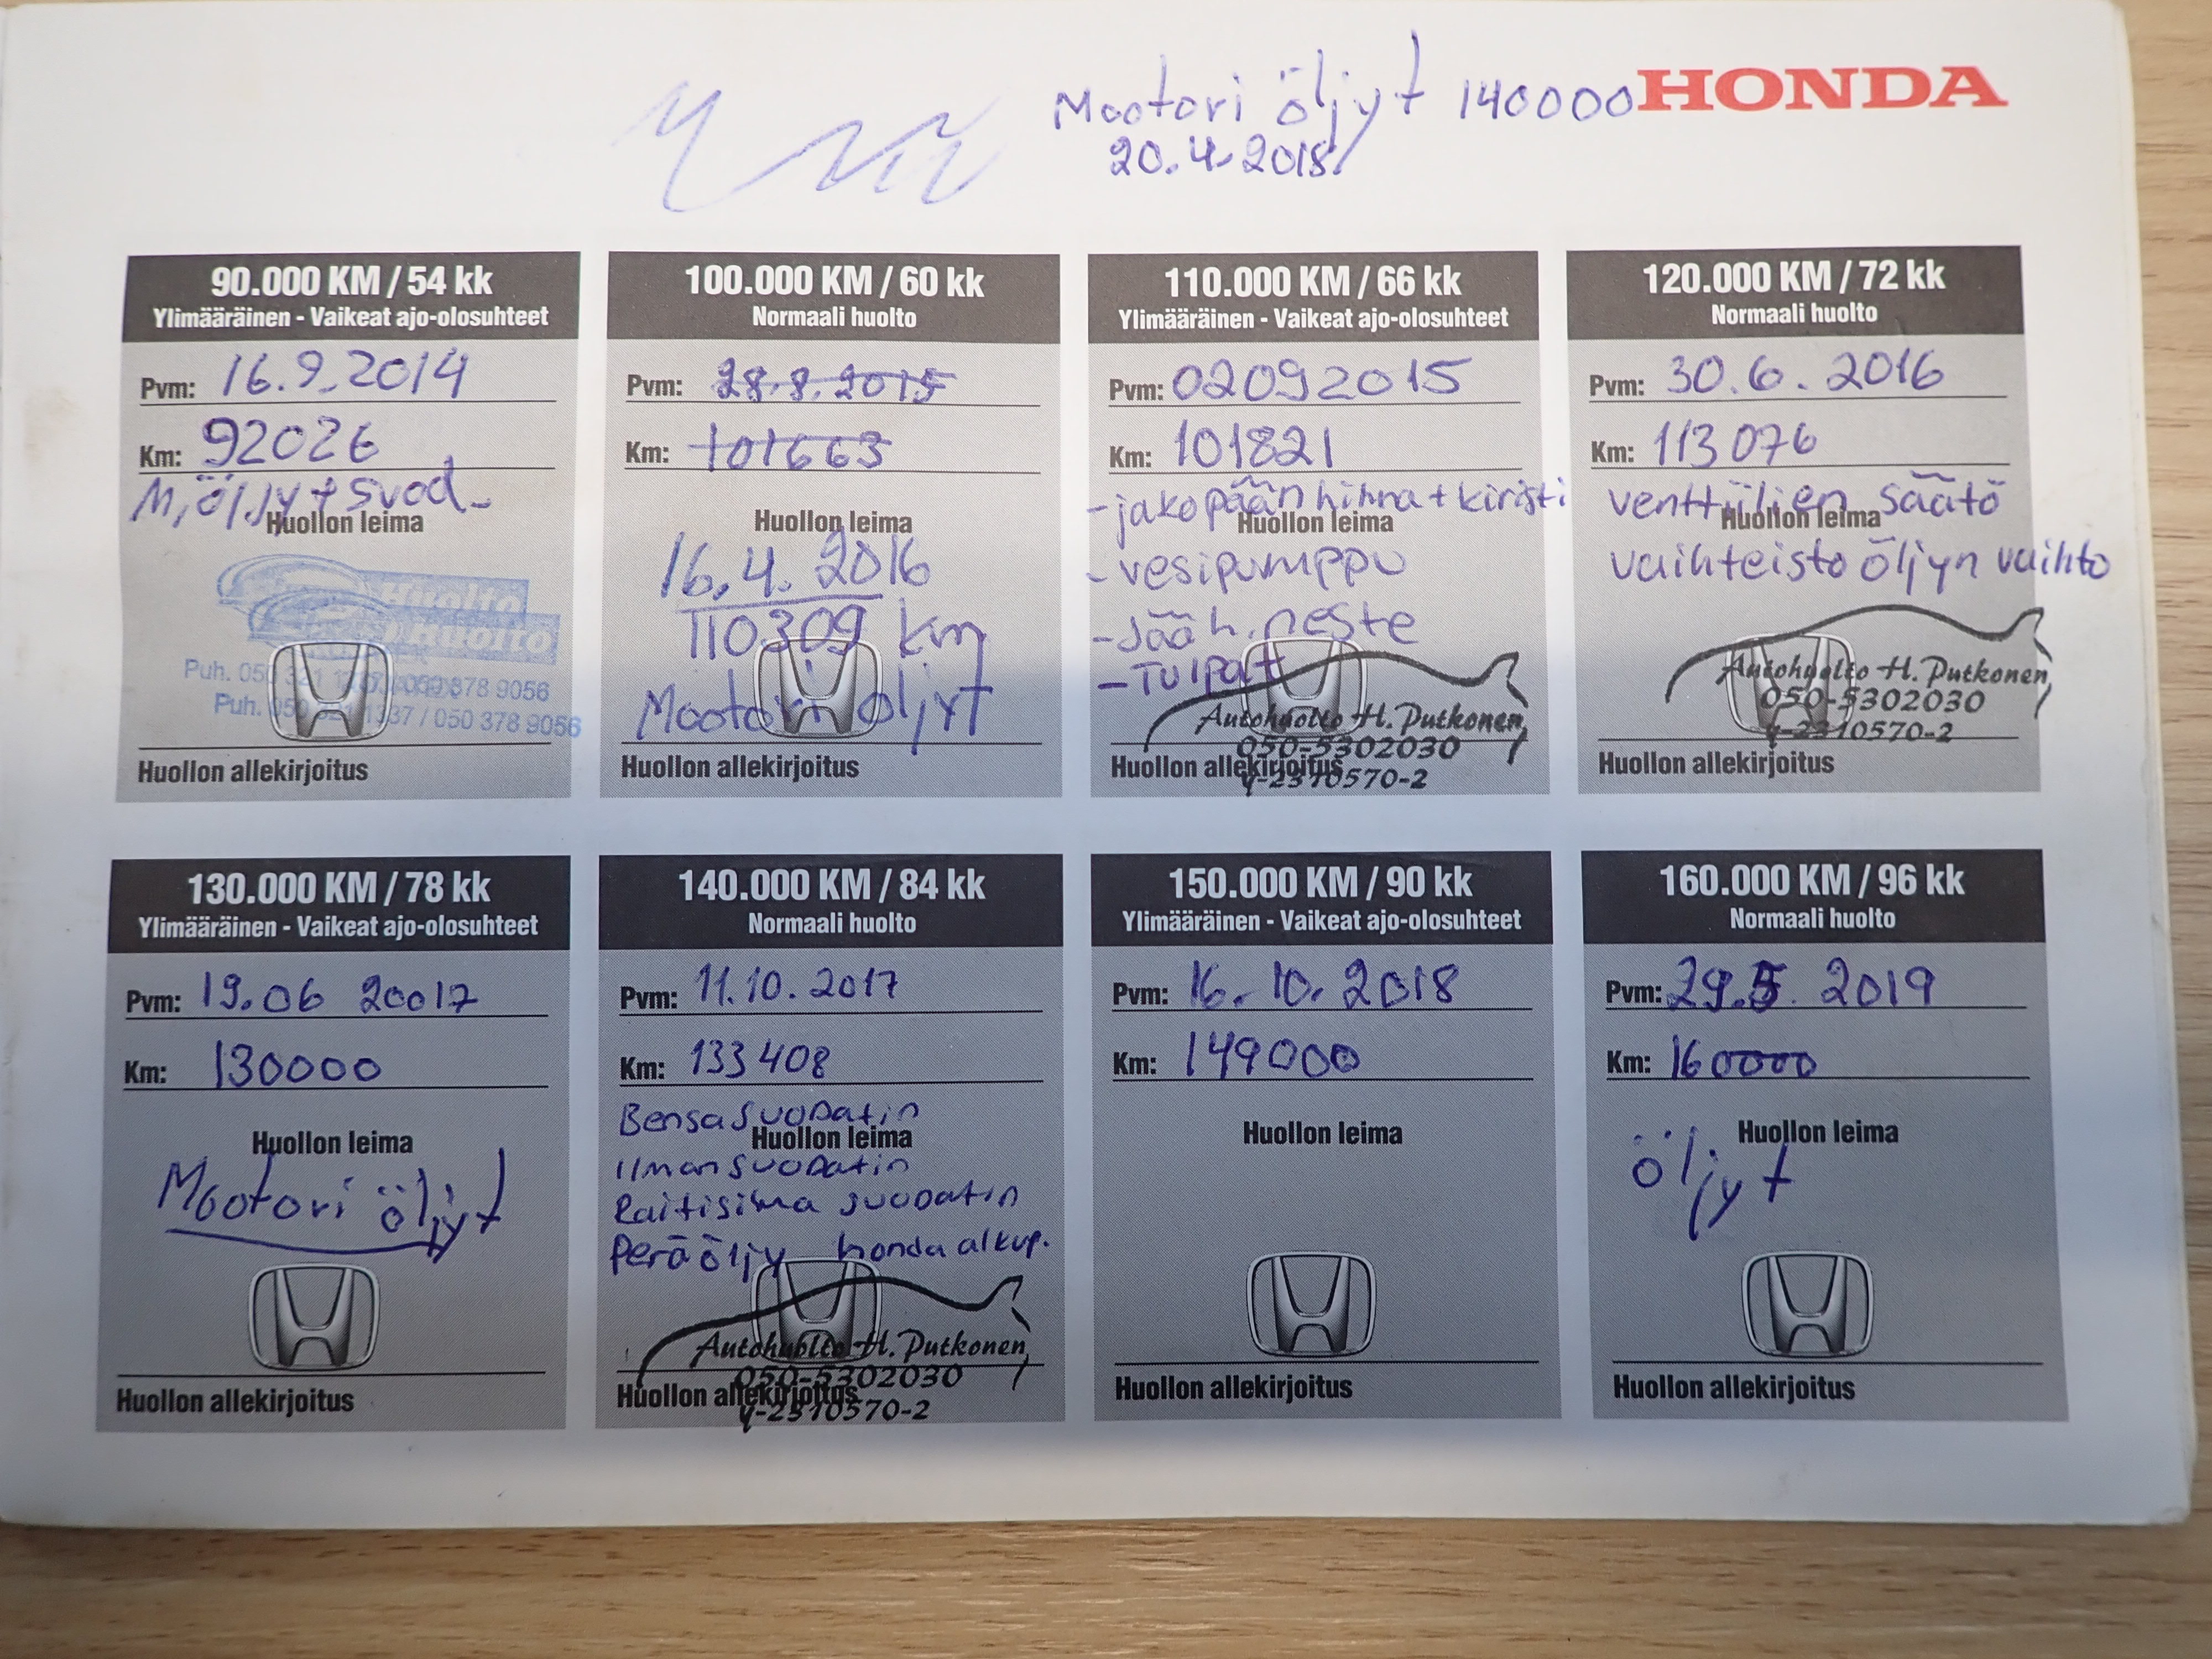 Mootori öljyt 140000 HONDA
20.4.2018
90.000 KM / 54 kk
Ylimääräinen - Vaikeat ajo-olosuhteet
Pvm: 16.9.2014
Km: 92026
M.öljy + suod.
Huollon leima
Huolto
Huolto
Puh. 050 321 / 050 378 9056
Puh. 050 321 1337 / 050 378 9056
Huollon allekirjoitus
100.000 KM / 60 kk
Normaali huolto
Pvm: 28.8.2015
Km: 101663
Huollon leima
16.4.2016
110309 km
Mootori öljyt
Huollon allekirjoitus
110.000 KM / 66 kk
Ylimääräinen - Vaikeat ajo-olosuhteet
Pvm: 02092015
Km: 101821
-jakopään hihna + kiristi
Huollon leima
-vesipumppu
-Jääh.neste
-Tulpat
Autohuolto H. Putkonen
050-5302030
Huollon allekirjoitus
y-2310570-2
120.000 KM / 72 kk
Normaali huolto
Pvm: 30.6.2016
Km: 113076
venttiilien säätö
Huollon leima
vaihteisto öljyn vaihto
Autohuolto H. Putkonen
050-5302030
y-2310570-2
Huollon allekirjoitus
130.000 KM / 78 kk
Ylimääräinen - Vaikeat ajo-olosuhteet
Pvm: 19.06 20017
Km: 130000
Huollon leima
Mootori öljyt
Huollon allekirjoitus
140.000 KM / 84 kk
Normaali huolto
Pvm: 11.10.2017
Km: 133408
Bensasuodatin
Huollon leima
Ilmansuodatin
Raitisilma suodatin
Perä öljy honda alkup.
Autohuolto H. Putkonen
050-5302030
Huollon allekirjoitus
y-2310570-2
150.000 KM / 90 kk
Ylimääräinen - Vaikeat ajo-olosuhteet
Pvm: 16.10.2018
Km: 149000
Huollon leima
Huollon allekirjoitus
160.000 KM / 96 kk
Normaali huolto
Pvm: 29.5. 2019
Km: 160000
Huollon leima
öljyt
Huollon allekirjoitus